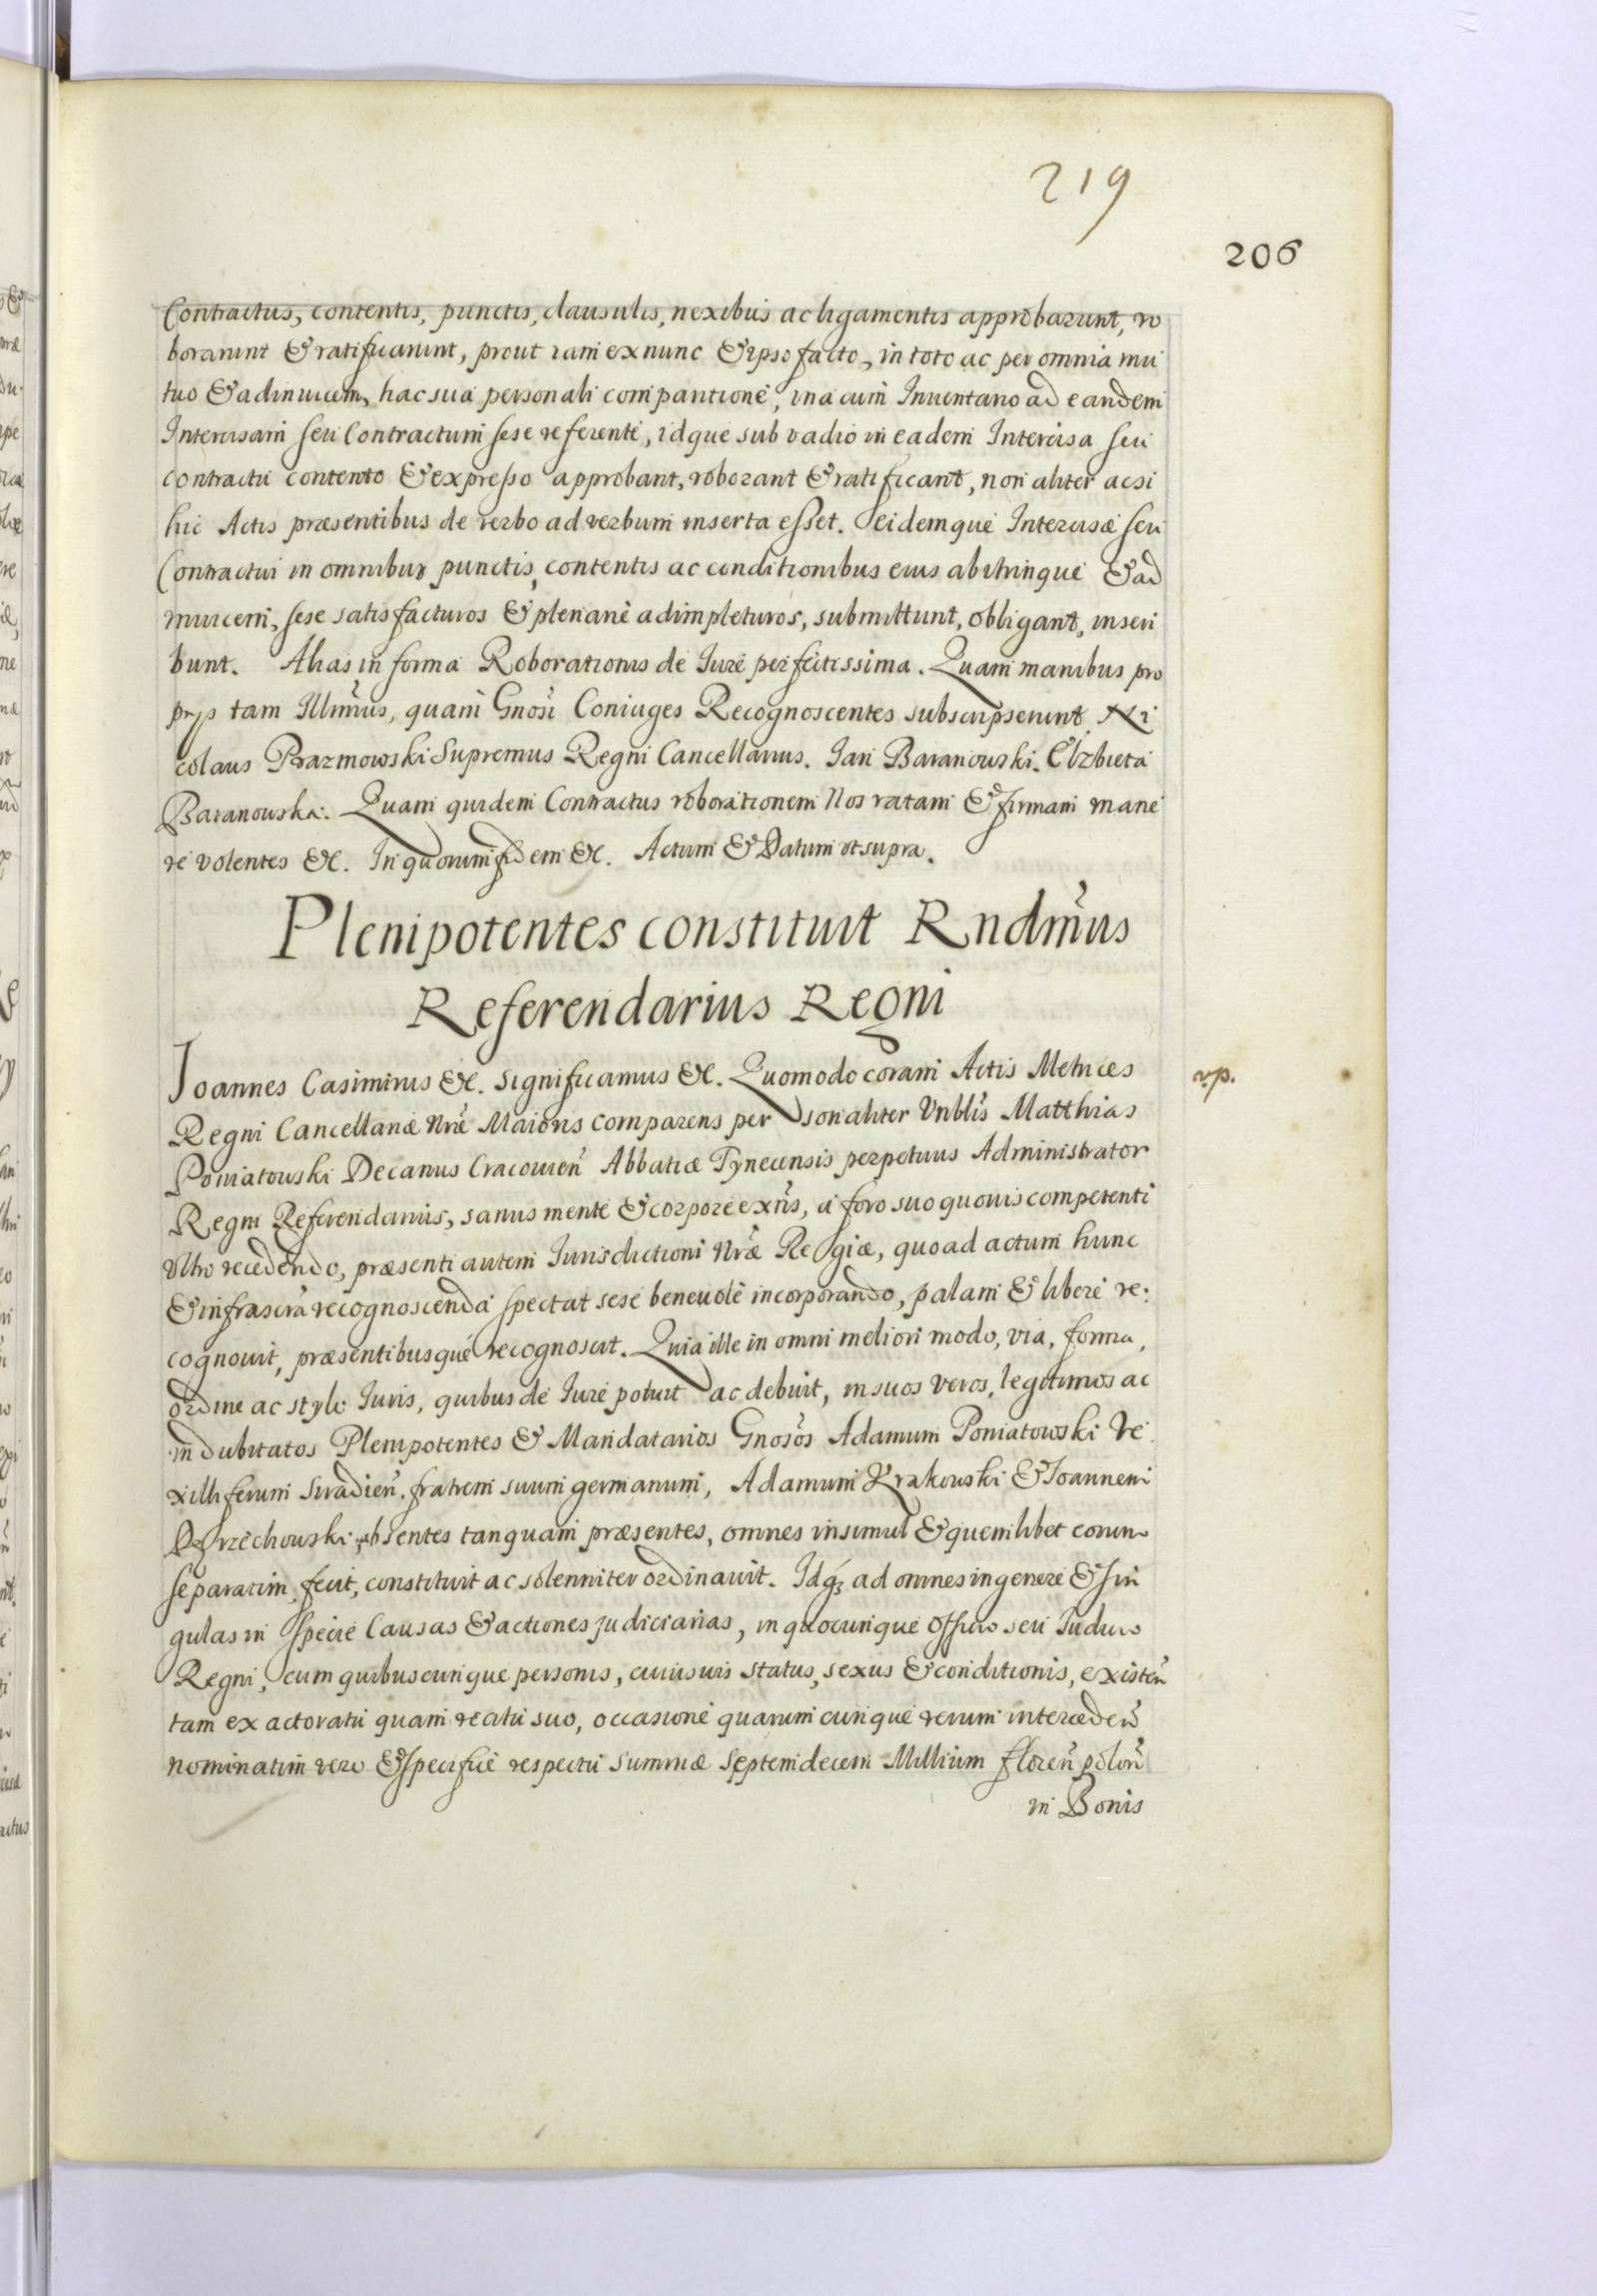 219
206
Contractus, contentis, punctis, clausulis, nexibus ac ligamentis approbarunt, ro
borarunt & ratificarunt, prout iam ex nunc & ipso facto, in toto ac per omnia mu
tuo & adinuicem, hac sua personali comparitione, una cum Inuentario ad eandem
Intercisam seu Contractum sese referente, idque sub vadio in eadem Intercisa seu
contractu contento & expresso approbant, roborant & ratificant, non aliter acsi
hic Actis præsentibus de verbo ad verbum inserta esset. Eidemque Intercisæ seu
Contractui in omnibus punctis, contentis ac conditionibus eius ab utrinque & ad
inuicem, sese satisfacturos & plenariè adimpleturos, submittunt, obligant, inscri
bunt. Alias in forma Roborationis de Iure perfectissima. Quam manibus pro
prÿs tam Illmus, quam Gnosi Coniuges Recognoscentes subscripserunt. Ni
colaus Prazmowski Supremus Regni Cancellarius. Jan Baranowski. Elzbieta
Baranowska. Quam quidem Contractus roborationem Nos ratam & firmam mane
re volentes &c. In quorum fidem &c. Actum & Datum ut supra.
Plenipotentes constituit Rndmus
Referendarius Regni
Joannes Casimirus &c. Significamus &c. Quomodo coram Actis Metrices
vp.
Regni Cancellariæ Nræ Maioris comparens personaliter Vrblis Matthias
Poniatowski Decanus Cracouien Abbatiæ Tynecensis perpetuus Administrator
Regni Referendarius, sanus mente & corpore exns, à foro suo quouis competenti
ultro recedendo, præsenti autem Iurisdictioni Nræ Regiæ, quoad actum hunc
& infrascra recognoscenda spectat sese beneuolè incorporando, palam & liberè re:
cognouit, præsentibusque recognoscit. Quia ille in omni meliori modo, via, forma,
ordine ac stylo Iuris, quibus de Iure potuit ac debuit, in suos veros, legitimos ac
indubitatos Plenipotentes & Mandatarios Gnosos Adamum Poniatowski Ve
xilliferum Siradien. fratrem suum germanum, Adamum Krakowski & Joannem
Orzechowski absentes tanquam præsentes, omnes insimul & quemlibet eorum
separatim, fecit, constituit ac solenniter ordinauit. Idq3 ad omnes in genere & sin
gulas in specie Causas & actiones judiciarias, in quocunque Officio seu Iudicio
Regni, cum quibuscunque personis, cuiusuis status, sexus & conditionis, existen
tam ex actoratu quam reatu suo, occasione quarumcunque rerum interceden
nominatim vero & specificè respectu summæ septemdecem Millium floren polon
in Bonis